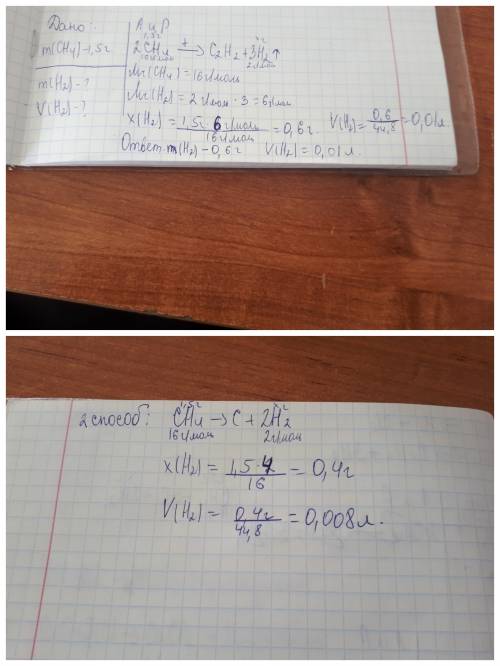 Дано:
m(CH4)-1,5г
m(H2)-?
V(H2)-?
1,5г хг
2CH4 t→ C2H2+3H2↑
16г/моль 2г/моль
Mr(CH4)=16г/моль
Mr(H2)=2г/моль·3=6г/моль
x(H2)=1,5г·6г/моль/16г/моль=0,6г. V(H2)=0,6/44,8=0,01л.
Ответ: m(H2)-0,6г V(H2)=0,01л.
2 способ:
1,5г хг
CH4→C+2H2
16г/моль 2г/моль
x(H2)=1,5·4/16=0,4г
V(H2)=0,4г/44,8=0,008л.